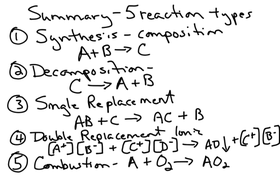 Summary - 5 reaction types
① Synthesis - composition
A + B → C
② Decomposition -
C → A + B
③ Single Replacement
AB + C → AC + B
④ Double Replacement Ionic
[A+][B-] + [C+][D-] → AD↓ + [C+][B-]
⑤ Combustion - A + O₂ → AO₂